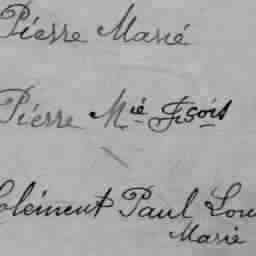 Piérre Marié
Piérre Mié Fçois
Clément Paul Lou
Marie